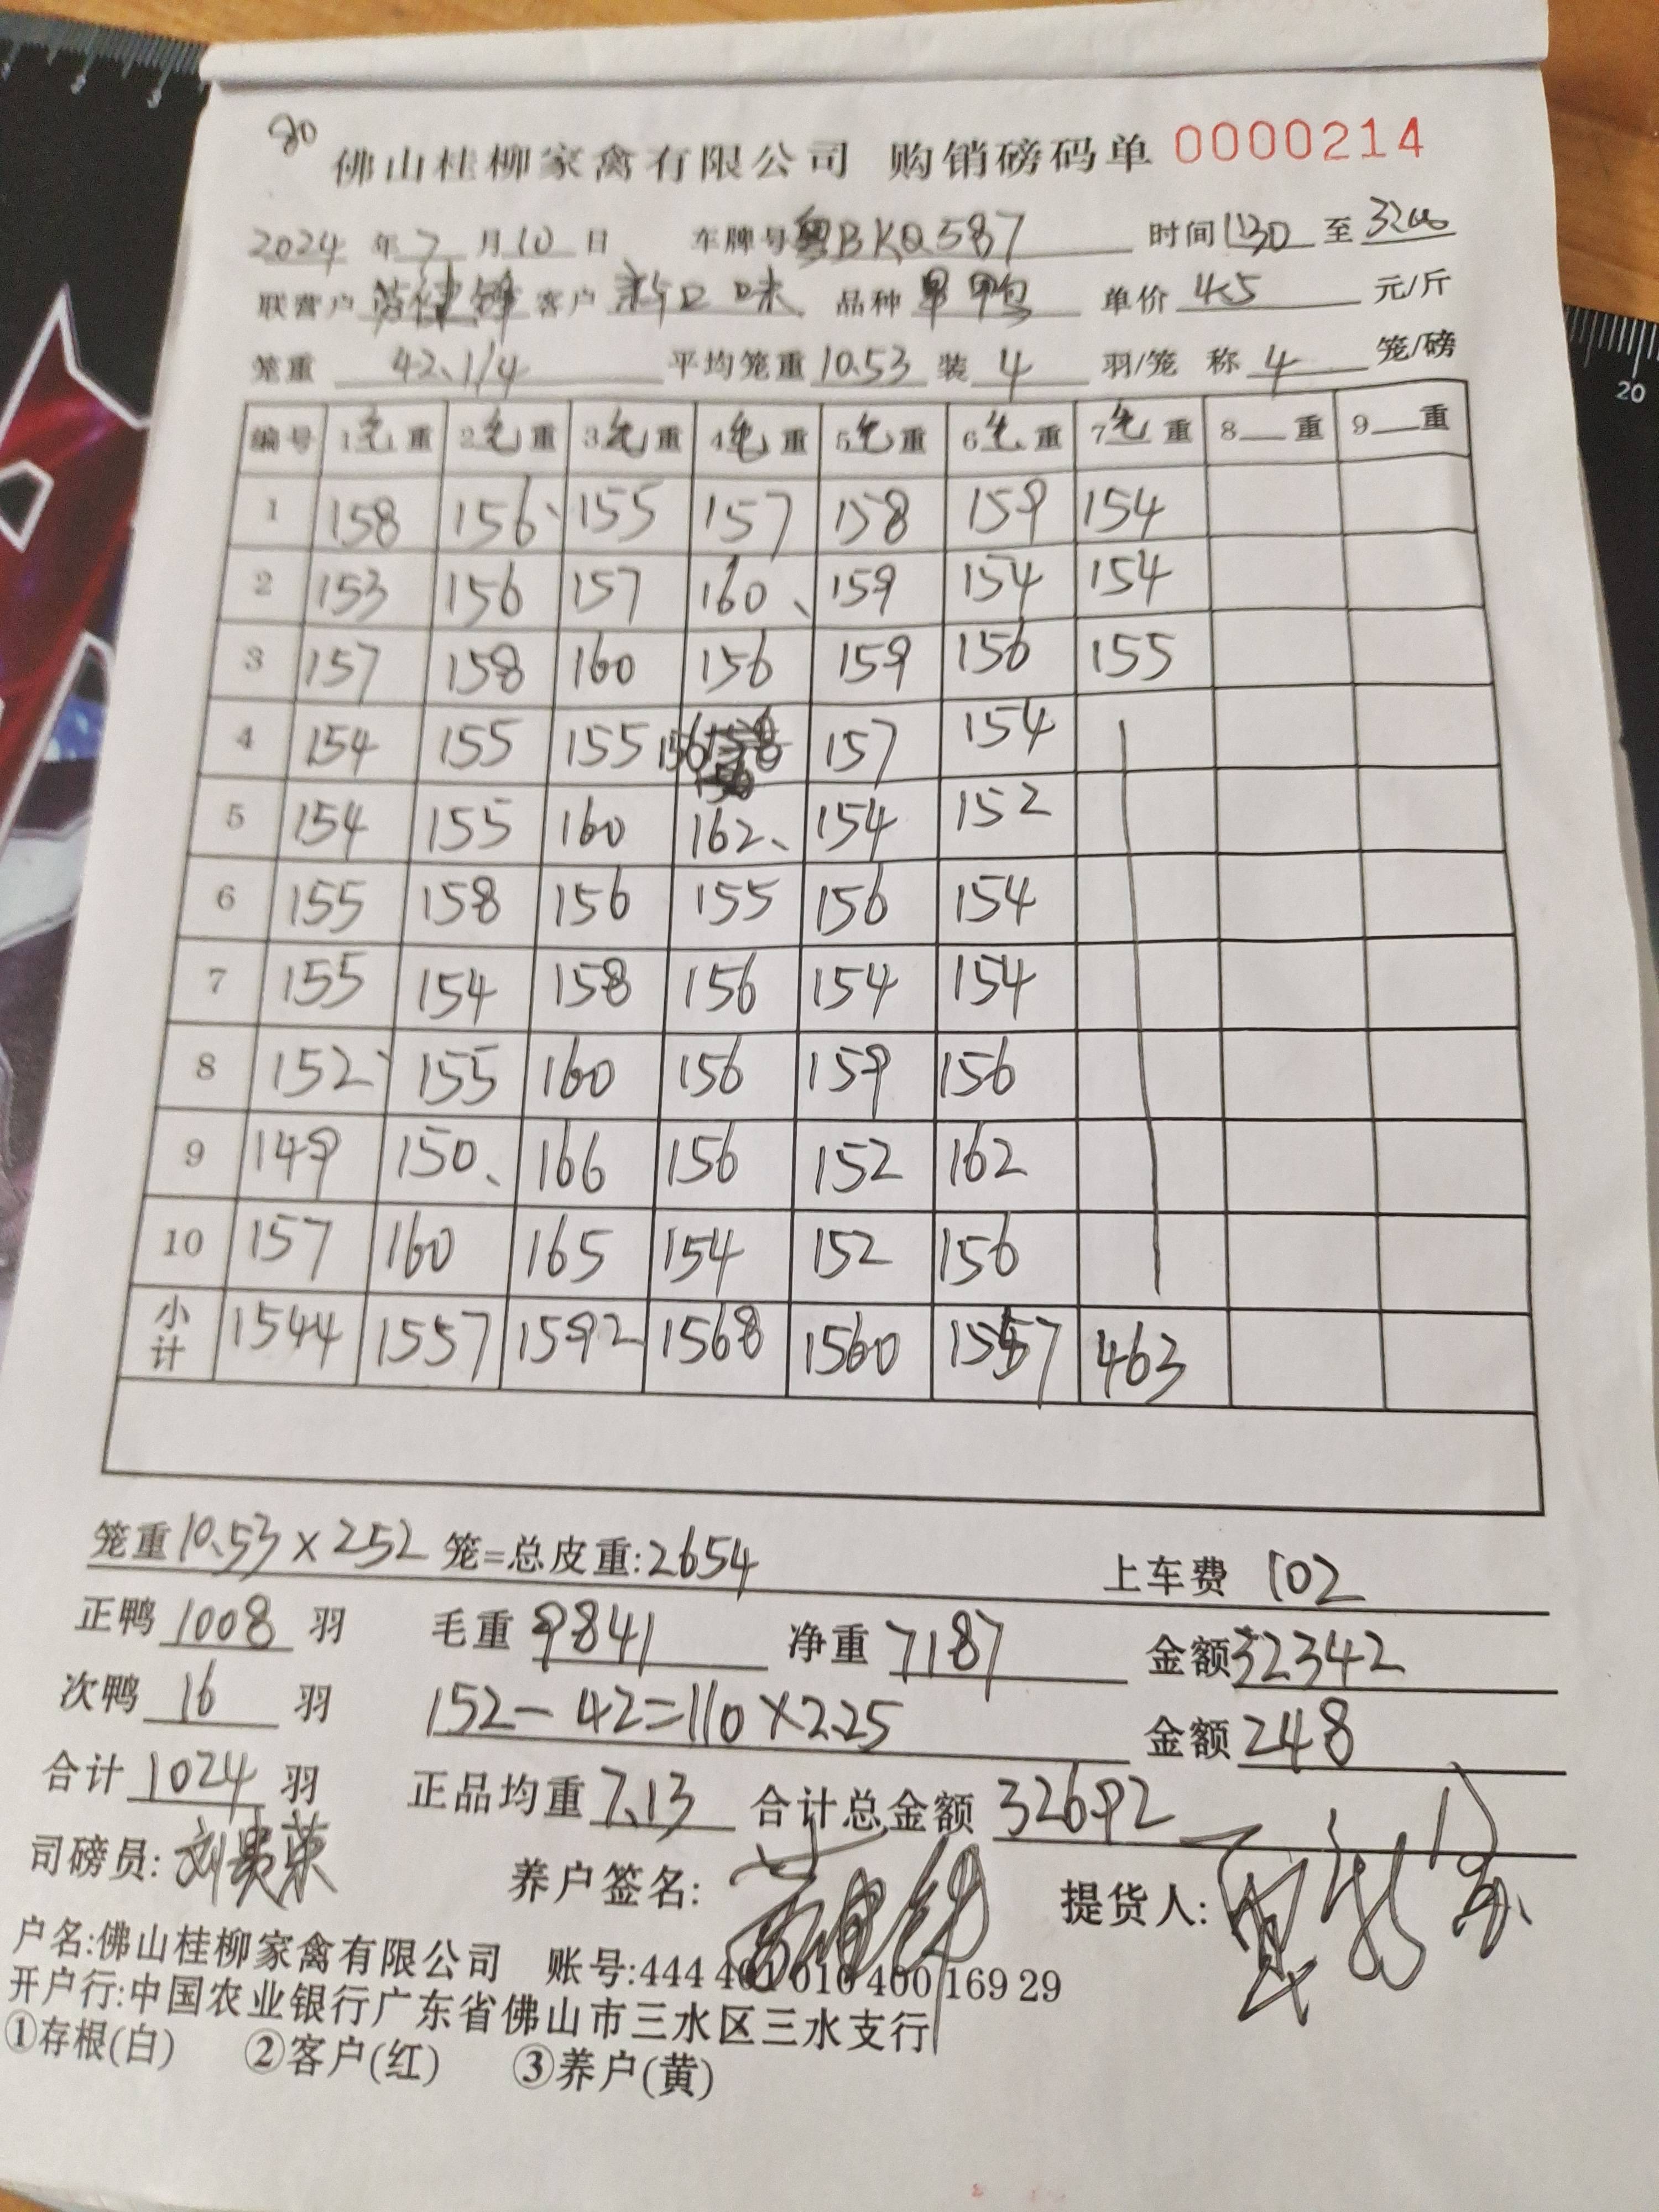 80
佛山桂柳家禽有限公司 购销磅码单 0000214
2024 年 7 月 10 日 车牌号 粤BKQ587 时间 1130 至
联营户 客户 新口味 品种 单价 4.5 元/斤
笼重 42.1/4 平均笼重 10.53 装 4 羽/笼 称 4 笼/磅
编号 1毛重 2毛重 3毛重 4毛重 5毛重 6毛重 7毛重 8__重 9__重
1 158 156 155 157 158 159 154
2 153 156 157 160 159 154 154
3 157 158 160 156 159 156 155
4 154 155 155 156 157 154
5 154 155 160 162 154 152
6 155 158 156 155 156 154
7 155 154 158 156 154 154
8 152 155 160 156 159 156
9 149 150 166 156 152 162
10 157 160 165 154 152 156
小计 1544 1557 1592 1568 1560 1557 463
笼重 10.53 × 252 笼=总皮重:2654 上车费 102
正鸭 1008 羽 毛重 9841 净重 7187 金额 32342
次鸭 16 羽 152-42=110×2.25 金额 248
合计 1024 羽 正品均重 7.13 合计总金额 32692
司磅员: 刘贵荣 养户签名: 提货人:
户名:佛山桂柳家禽有限公司 账号:444 401 010 400 169 29
开户行:中国农业银行广东省佛山市三水区三水支行
①存根(白) ②客户(红) ③养户(黄)
20